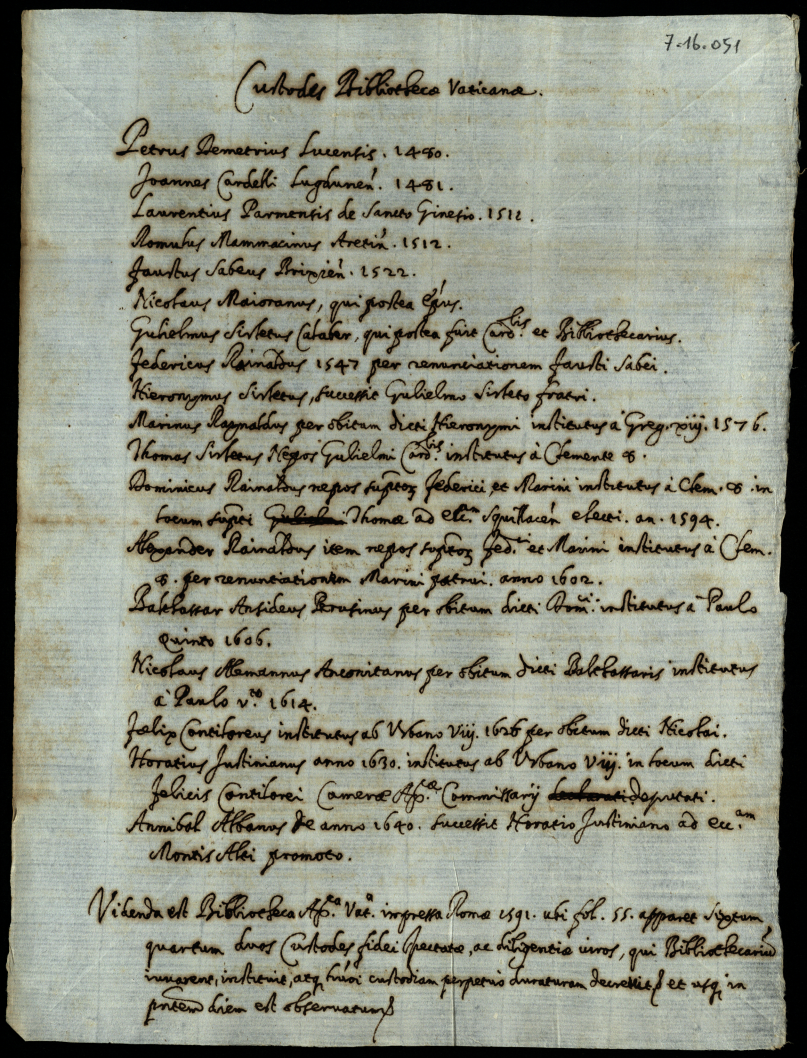 7.16.051
Custodes Bibliothecæ Vaticanæ.
Petrus Demetrius Lucensis. 1480.
Joannes Cardelli Lugdunen̄. 1481.
Laurentius Parmensis de Sancto Ginesio. 1511.
Romulus Mammacinus Aretin̄. 1512.
Faustus Sabeus Brixien̄. 1522.
Nicolaus Maioranus, qui postea Ep̄us.
Gulielmus Sirletus Calaber, qui postea fuit Card.lis et Bibliothecarius.
Federicus Rainaldus 1547 per renunciationem Fausti Sabei.
Hieronymus Sirletus, successit Gulielmo Sirleto fratri.
Marinus Raynaldus per obitum dicti Hieronymi institutus à Greg. xiij. 1576.
Thomas Sirletus Nepos Gulielmi Card.lis institutus à Clemente 8.
Dominicus Rainaldus nepos supt̄oꝝ Federici et Marini institutus à Clem. 8. in
locum supt̄i Gulielmi Thomæ ad Squillacen̄ electi. an. 1594.
Alexander Rainaldus item nepos supt̄oꝝ Fed.ci et Marini institutus à Clem.
8. per renuntiationem Marini patrui. anno 1602.
Balthassar Ansideus Perusinus per obitum dicti Dom.ci institutus à Paulo
Quinto 1606.
Nicolaus Alemannus Anconitanus per obitum dicti Balthassaris institutus
à Paulo v.to 1614.
Fælix Contiloreus institutus ab Urbano Viij. 1626 per obitum dicti Nicolai.
Horatius Justinianus anno 1630. institutus ab Urbano Viij. in locum dicti
Felicis Contilorei Cameræ Ap.cæ Commissarij declarati deputati.
Annibal Albanus de anno 1640. successit Horatio Justiniano ad ecc.am
Montis Alti promoto.
Videnda est Bibliotheca Ap.ca Vat.a impressa Romæ 1591. ubi fol. 55. apparet Sixtum
quartum duos Custodes fidei spectatæ, ac diligentiæ viros, qui Bibliothecariū
iuvarent, instituit, atq; custodiam perpetuò duraturam decrevit, et usq; in
pn̄tem diem est observatum